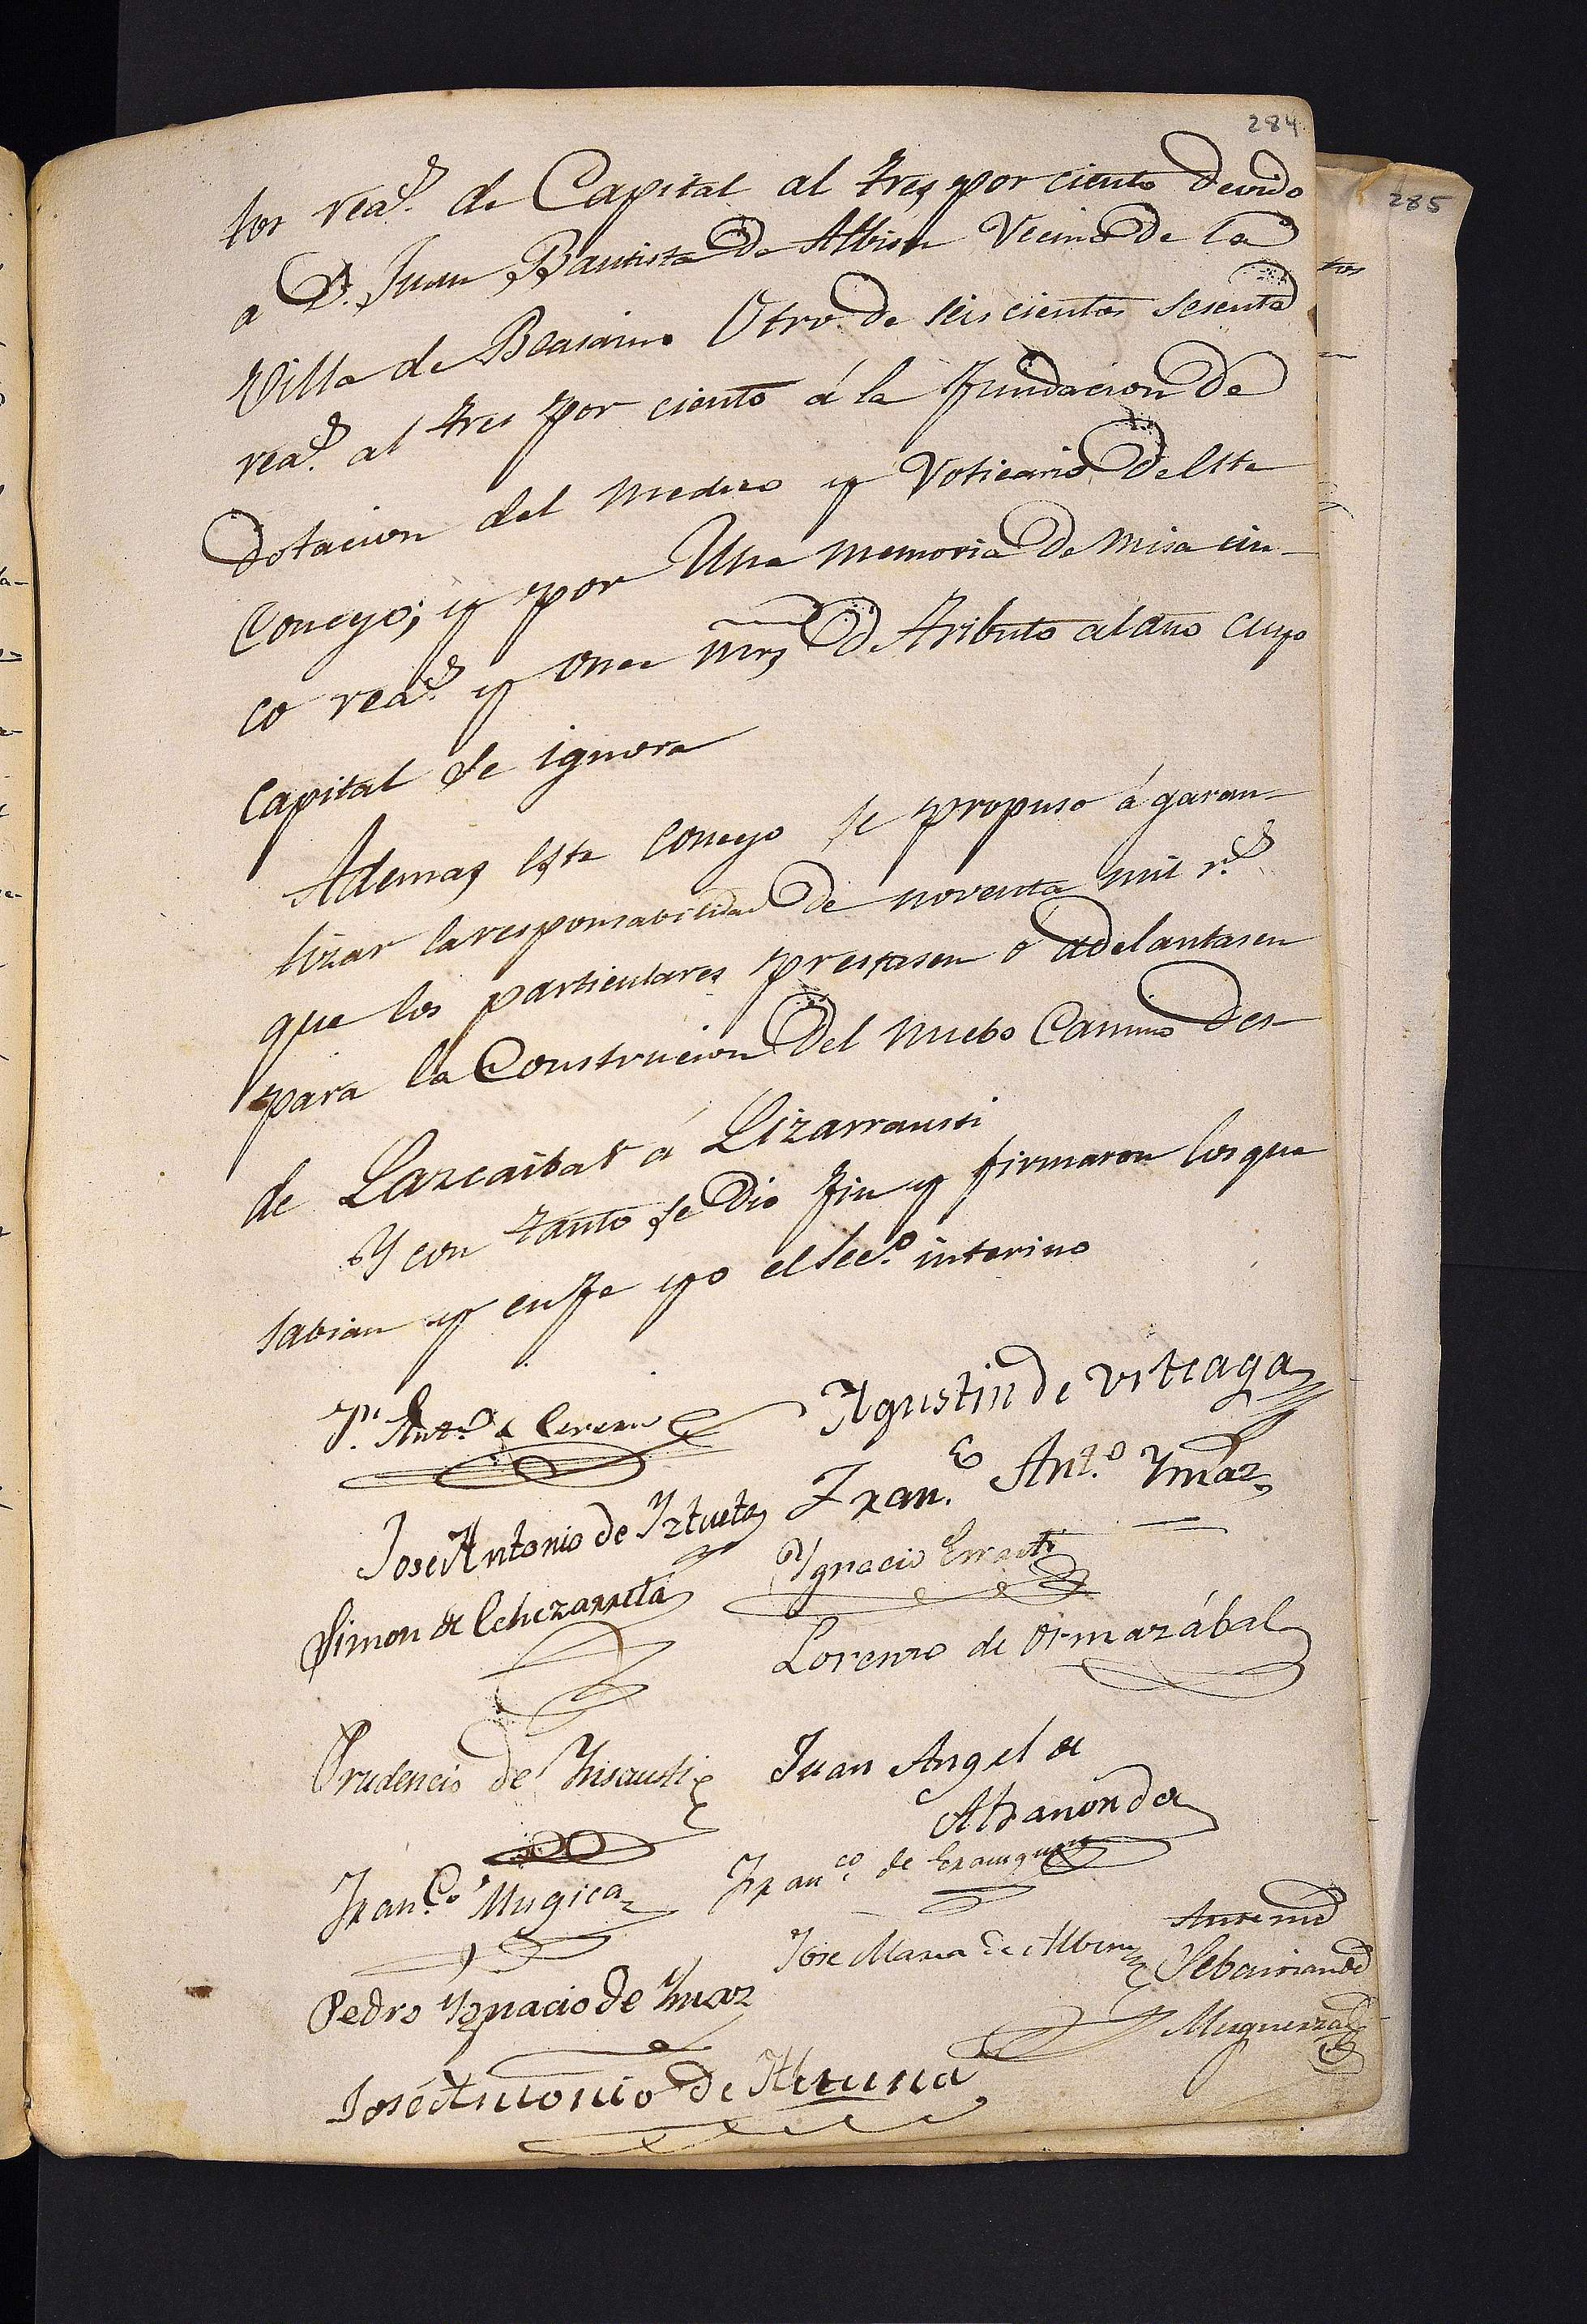 284
tos rea.s de Capital al tres por ciento devido
a D. Juan Bautista de Albisu Vecino de la
Villa de Beasain. Otro de seis cientos sesenta
rea.s al tres por ciento á la fundacion de
dotacion del medico y Voticario de este
Concejo; y por Una memoria de misa cin-
co rea.s y once mrs de Tributo al año cuyo
Capital se ignora
Ademas este concejo se propuso á garan-
tizar la responsabilidad de noventa mil r.s
que los particulares prestasen o adelantasen
para la Construcion del nuebo Camino des-
de Lazcaibar á Lizarrausti
Y con tanto se dio fin y firmaron los que
sabian y en fe yo el Sec.o interino
Agustin de Urteaga
Jose Antonio de Yztueta
Fran.co Ant.o Ymaz
Simon de Echezarreta
Ygnacio Errasti
Lorenzo de Ormazábal
Prudencio de Insausti
Juan Angel de
Fran.co Mugica
Fran.co de
Jose Maria de Albisu
Ante mi
Sebastian de
Muguerza
Pedro Ygnacio de Ymaz
José Antonio de Altuna
285
tos